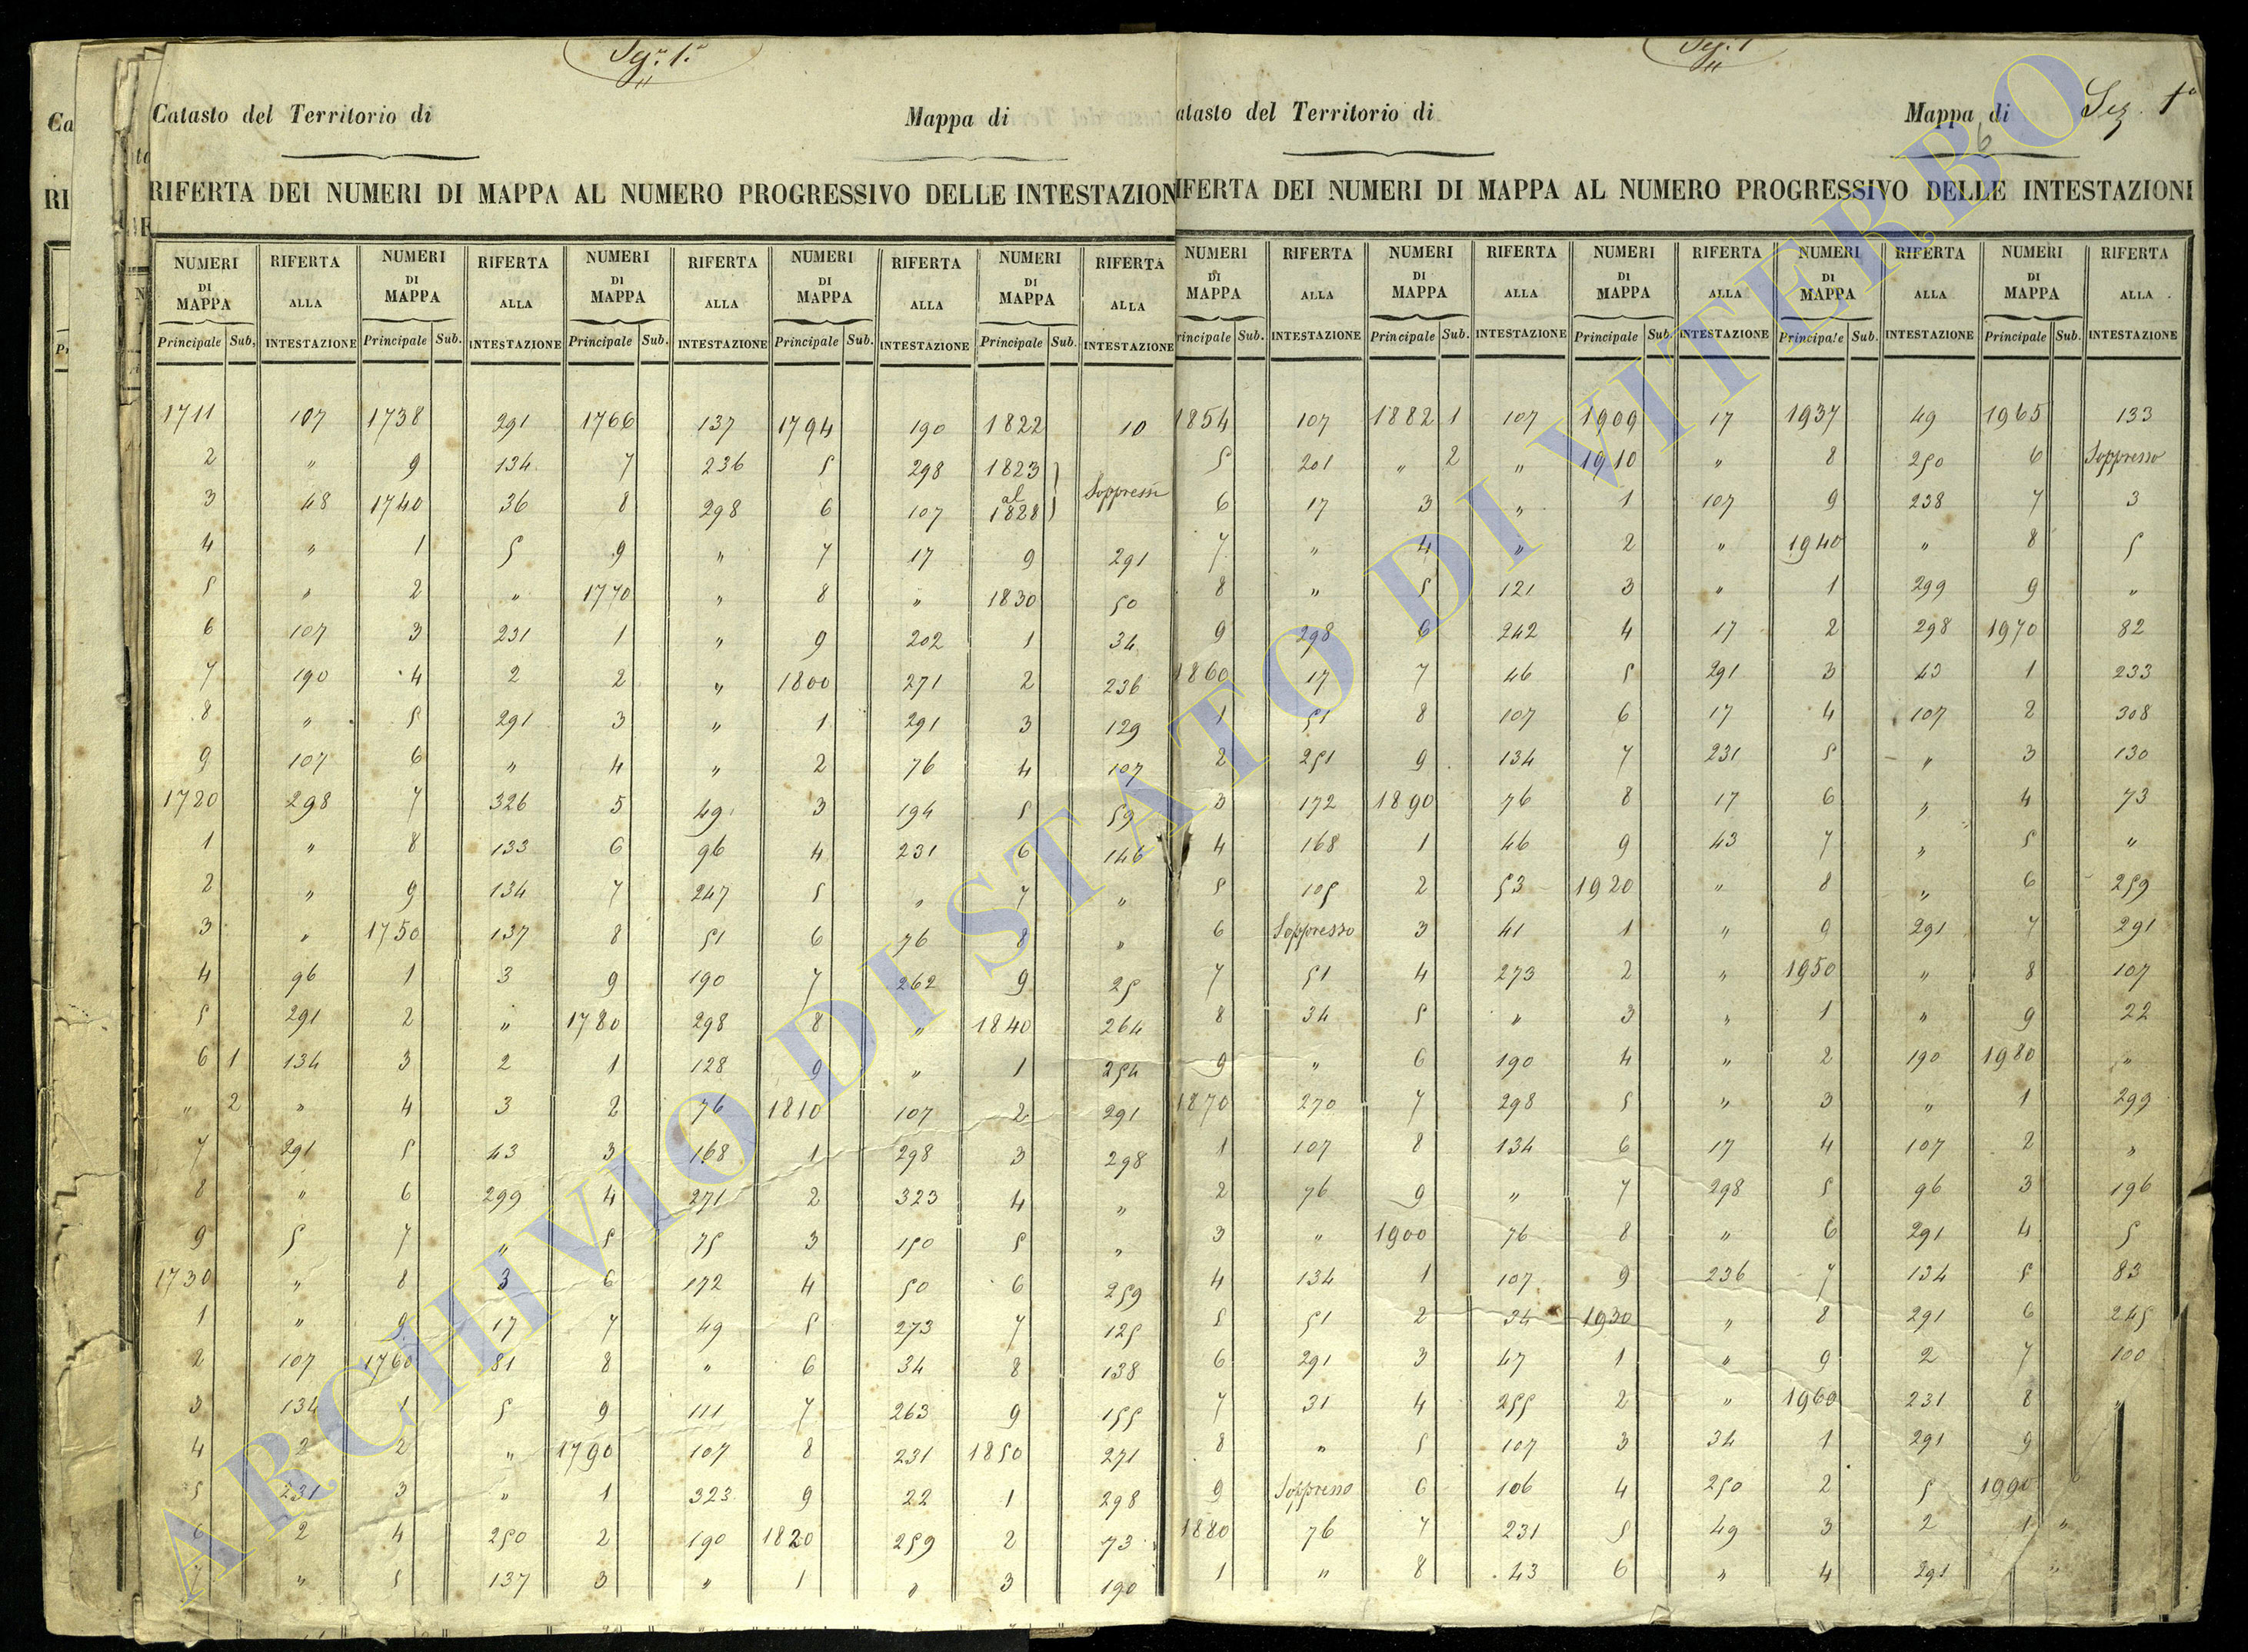 Seg.ne 1.a
Catasto del Territorio di Mappa di
RIFERTA DEI NUMERI DI MAPPA AL NUMERO PROGRESSIVO DELLE INTESTAZION
NUMERI DI MAPPA RIFERTA ALLA NUMERI DI MAPPA RIFERTA ALLA NUMERI DI MAPPA RIFERTA ALLA NUMERI DI MAPPA RIFERTA ALLA NUMERI DI MAPPA RIFERTA ALLA
Principale Sub. INTESTAZIONE Principale Sub. INTESTAZIONE Principale Sub. INTESTAZIONE Principale Sub. INTESTAZIONE Principale Sub. INTESTAZIONE
1711 107 1738 291 1766 137 1794 190 1822 10
2 " 9 134 7 236 5 298 1823
3 48 1740 36 8 298 6 107 al 1828 Soppressi
4 " 1 5 9 " 7 17 9 291
5 " 2 " 1770 " 8 " 1830 50
6 107 3 231 1 " 9 202 1 34
7 190 4 2 2 " 1800 271 2 236
8 " 5 291 3 " 1 291 3 129
9 107 6 " 4 " 2 76 4 107
1720 298 7 326 5 49 3 194 5 59
1 " 8 133 6 96 4 231 6 146
2 " 9 134 7 247 5 " 7 "
3 " 1750 137 8 51 6 76 8 "
4 96 1 3 9 190 7 262 9 25
5 291 2 " 1780 298 8 " 1840 264
6 1 134 3 2 1 128 9 " 1 254
" 2 " 4 3 2 76 1810 107 2 291
7 291 5 43 3 168 1 298 3 298
8 " 6 299 4 271 2 323 4 "
9 5 7 " 5 75 3 150 5 "
1730 " 8 3 6 172 4 50 6 259
1 " 9 17 7 49 5 273 7 125
2 107 1760 81 8 " 6 34 8 138
3 134 1 5 9 111 7 263 9 155
4 2 2 " 1790 107 8 231 1850 271
5 231 3 " 1 323 9 22 1 298
6 2 4 250 2 190 1820 259 2 73
7 " 5 137 3 " 1 " 3 190
Sez. 1a
atasto del Territorio di Mappa di
6
IFERTA DEI NUMERI DI MAPPA AL NUMERO PROGRESSIVO DELLE INTESTAZIONI
NUMERI DI MAPPA RIFERTA ALLA NUMERI DI MAPPA RIFERTA ALLA NUMERI DI MAPPA RIFERTA ALLA NUMERI DI MAPPA RIFERTA ALLA NUMERI DI MAPPA RIFERTA ALLA
rincipale Sub. INTESTAZIONE Principale Sub. INTESTAZIONE Principale Sub. INTESTAZIONE Principale Sub. INTESTAZIONE Principale Sub. INTESTAZIONE
1854 107 1882 1 107 1909 17 1937 49 1965 133
5 201 " 2 " 1910 " 8 250 6 Soppresso
6 17 3 " 1 107 9 238 7 3
7 " 4 " 2 " 1940 " 8 5
8 " 5 121 3 " 1 299 9 "
9 298 6 242 4 17 2 298 1970 82
1860 17 7 46 5 291 3 43 1 233
1 51 8 107 6 17 4 107 2 308
2 251 9 134 7 231 5 " 3 130
3 172 1890 76 8 17 6 " 4 73
4 168 1 46 9 43 7 " 5 "
5 105 2 53 1920 " 8 " 6 259
6 Soppresso 3 41 1 " 9 291 7 291
7 51 4 273 2 " 1950 " 8 107
8 34 5 " 3 " 1 " 9 22
9 " 6 190 4 " 2 190 1980 "
1870 270 7 298 5 " 3 " 1 299
1 107 8 134 6 17 4 107 2 "
2 76 9 " 7 298 5 96 3 196
3 " 1900 76 8 " 6 291 4 5
4 134 1 107 9 236 7 134 5 83
5 51 2 34 1930 " 8 291 6 245
6 291 3 47 1 " 9 2 7 100
7 31 4 255 2 " 1960 231 8 "
8 " 5 107 3 34 1 291 9
9 Soppresso 6 106 4 250 2 5 1990
1880 76 7 231 5 49 3 2 1 "
1 " 8 43 6 " 4 291 "
ARCHIVIO DI STATO DI VITERBO